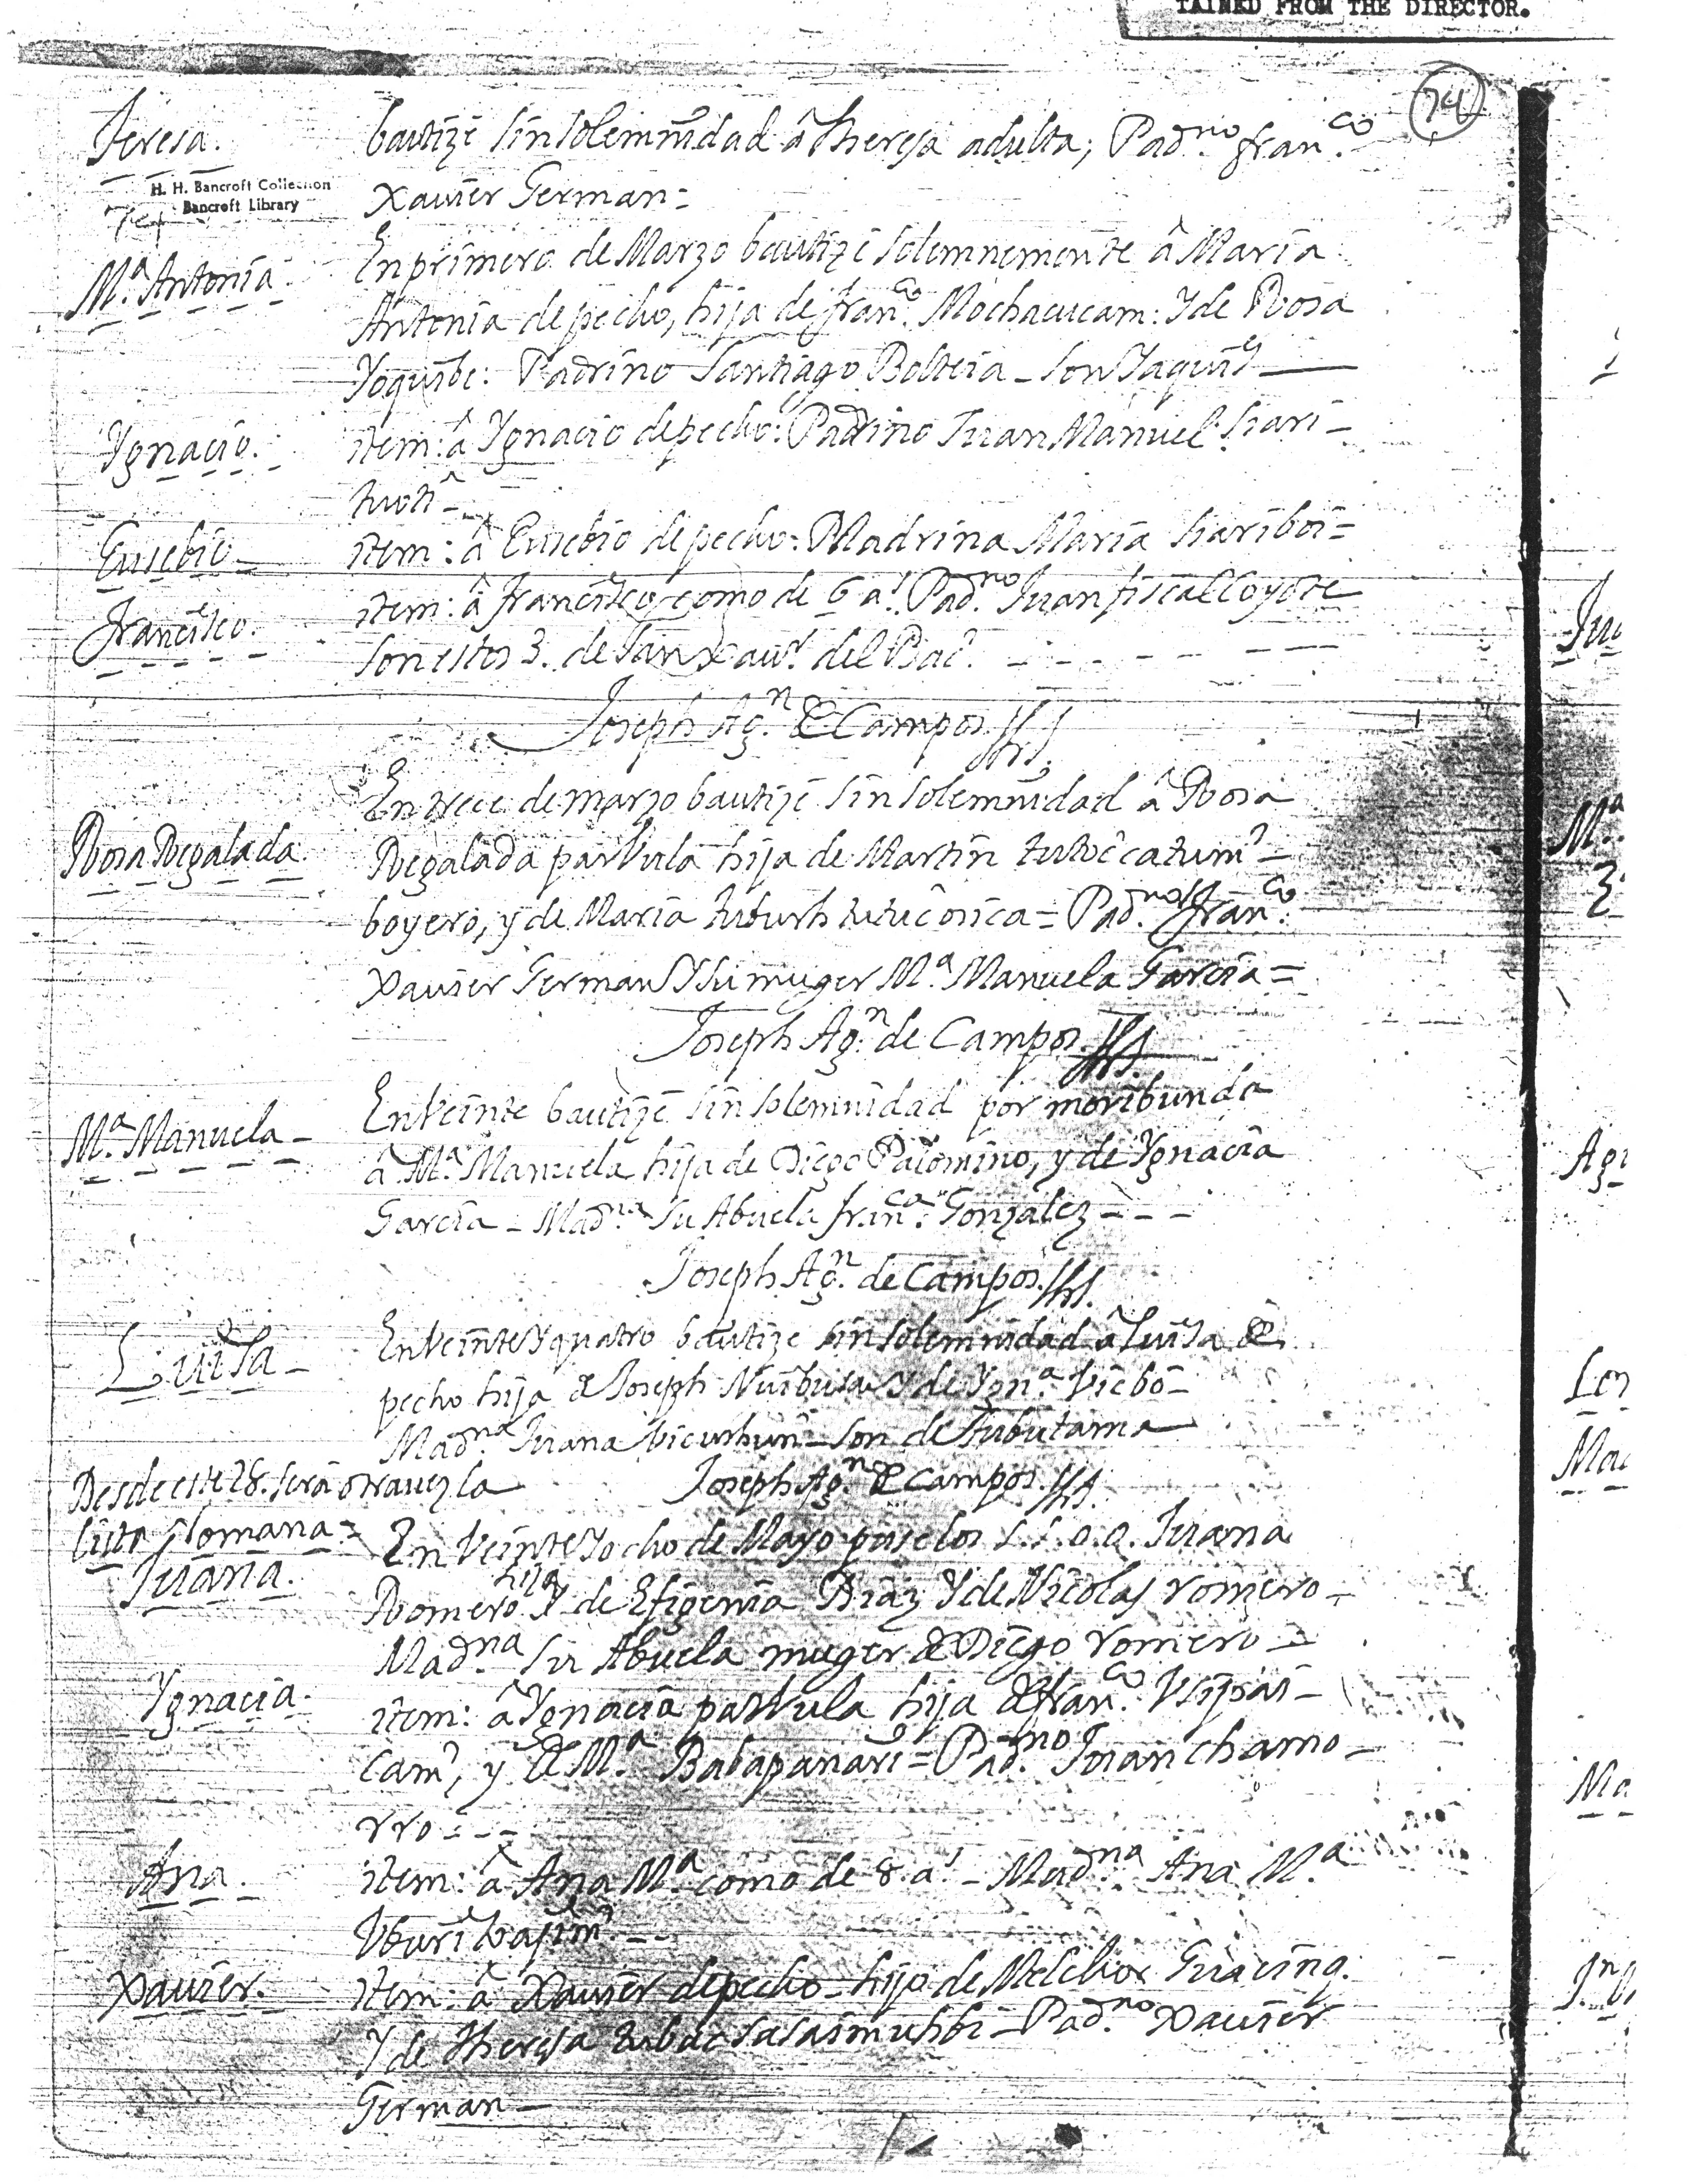 TAINED FROM THE DIRECTOR.
74
Teresa.
bautizè sin solemnidad â Theresa adulta; Padno. franco.
H. H. Bancroft Collection
Bancroft Library
74
Xavier German=
En primero de Marzo bautizè solemnemente â Maria
Ma. Antonia.
Antonia de pecho, hija de franco. Mochacucam: Y de Rosa
Yoquibe: Padrino Santiago Bolteia_ son Yaquis
Ygnacio.
item: â Ygnacio de pecho: Padrino Juan Manuel hari-
tuoti_
Eusebio_
item: â Eusebio de pecho: Madrina Maria hariboi=
Francisco.
item: â francisco como de 6 as. Padno. Juan fiscal Coyote
son estos 3. de San Xavr. del Bac.
Joseph Agn. de Campos. JHS.
En trece de marzo bautizè sin solemnidad â Rosa
Rosa Regalada.
Regalada parvula hija de Martin tutoccatum_
boyero, y de Maria tuburh tutucosica= Padnos. franco.
Xavier German Y su muger Ma. Manuela Garcia=
Joseph Agn. de Campos. JHS.
En veinte bautizè sin solemnidad por moribunda
Ma. Manuela_
â Ma. Manuela hija de Diego Palomino, y de Ygnacia
Garcia_ Madna. su Abuela franca. Gonzalez - - -
Joseph Agn. de Campos. JHS.
Luisa_
En veinte Y quatro bautizè sin solemnidad â Luisa de
pecho hija de Joseph Nuibuisa Y de Ygna. Vicbo_
Madna. Juana bicurhun_ son de Tubutama
Desde este 28. será otra vez la
Joseph Agn. de Campos. JHS.
lista Romana=
En veinte Y ocho de Mayo puse los S.S. o.o. Juana
Juana.
hija
Romero Y de Efigenia Diaz Y de Nicolas romero_
Madna. su Abuela muger de Diego romero_
Ygnacia.
item: â Ygnacia parvula hija de franco. Usipai-
cam, y de Ma. Babapanari= Padno. Juan chamo-
rro - - -
Ana.
item: â Ana Ma. como de 8. as._ Madna. Ana Ma.
Uburitvasim_
Xavier.
item: â Xavier de pecho_ hijo de Melchor Guicing.
Y de Theresa tubac sasaimuhbi_ Padno. Xavier
German_